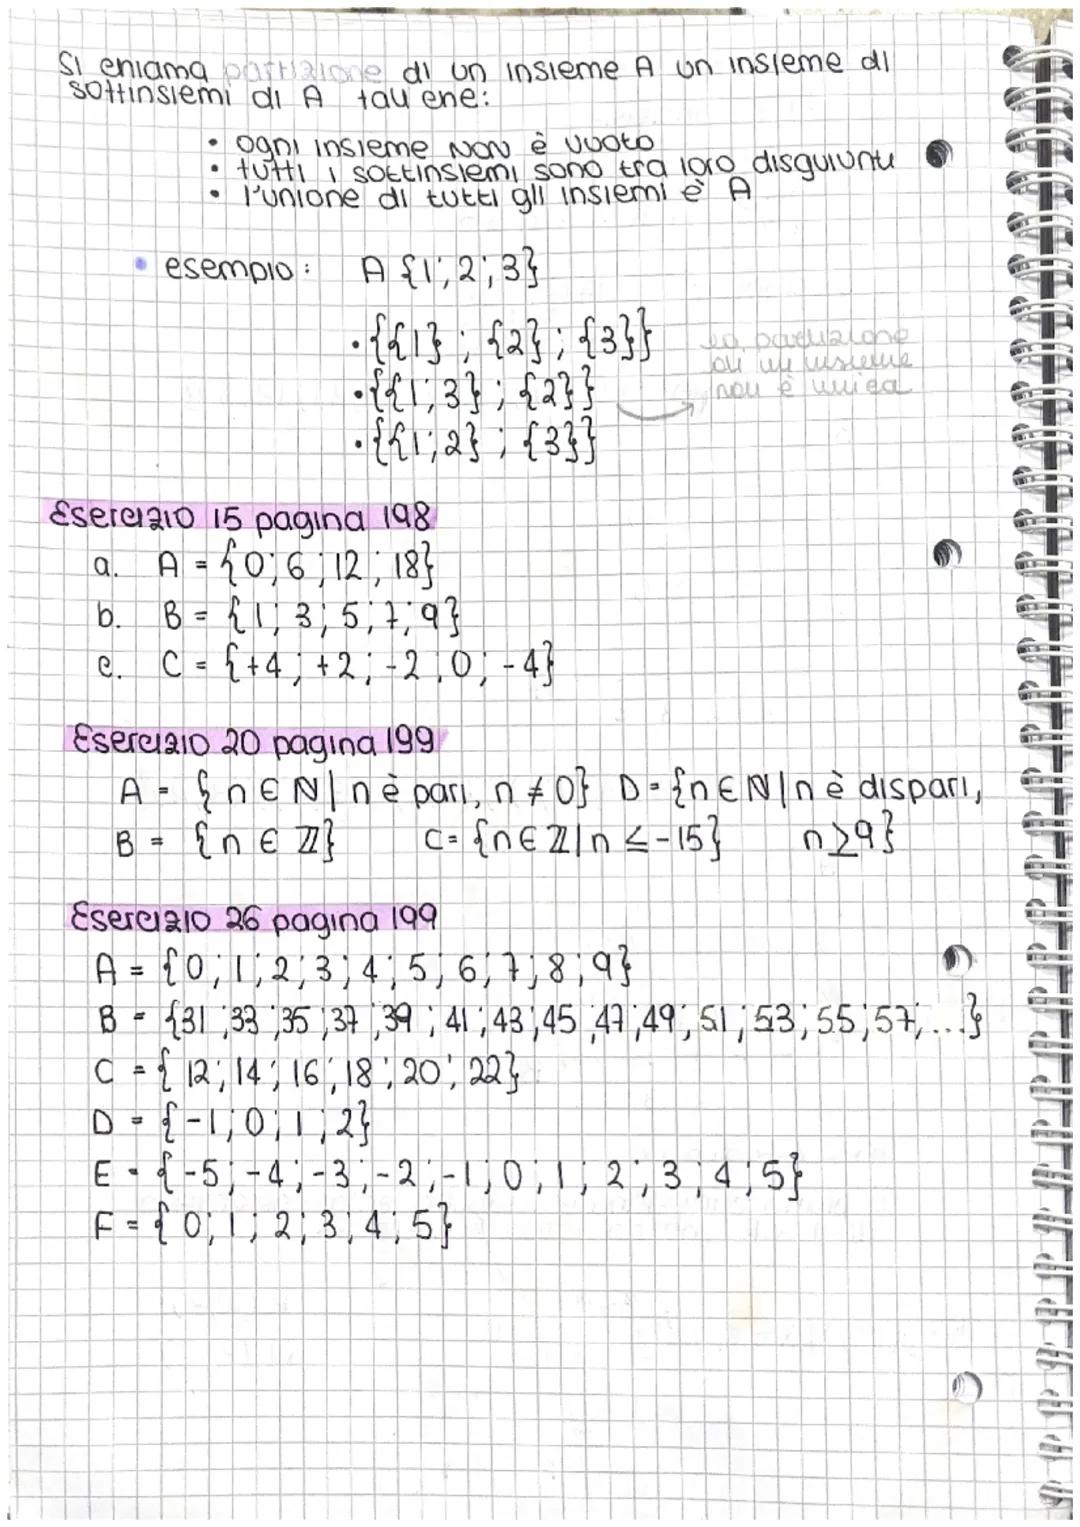 Si chiama partizione di un insieme A un insieme di
sottinsiemi di A tali che:
• ogni insieme NON è vuoto
• tutti i sottinsiemi sono tra loro disguiunti
• l'unione di tutti gli insiemi è A
• esempio: A {1;2;3}
•{{1};{2};{3}}
•{{1;3};{2}}
•{{1;2};{3}}
la partizione
di un insieme
non è unica
Esercizio 15 pagina 198
a. A = {0;6;12;18}
b. B = {1;3;5;7;9}
c. C = {+4;+2;-2;0;-4}
Esercizio 20 pagina 199
A = {n∈ℕ|n è pari, n≠0} D={n∈ℕ|n è dispari,
B = {n∈ℤ} C={n∈ℤ|n≤-15} n≥9}
Esercizio 26 pagina 199
A = {0;1;2;3;4;5;6;7;8;9}
B = {31;33;35;37;39;41;43;45;47;49;51;53;55;57;...}
C = {12;14;16;18;20;22}
D = {-1;0;1;2}
E = {-5;-4;-3;-2;-1;0;1;2;3;4;5}
F = {0;1;2;3;4;5}